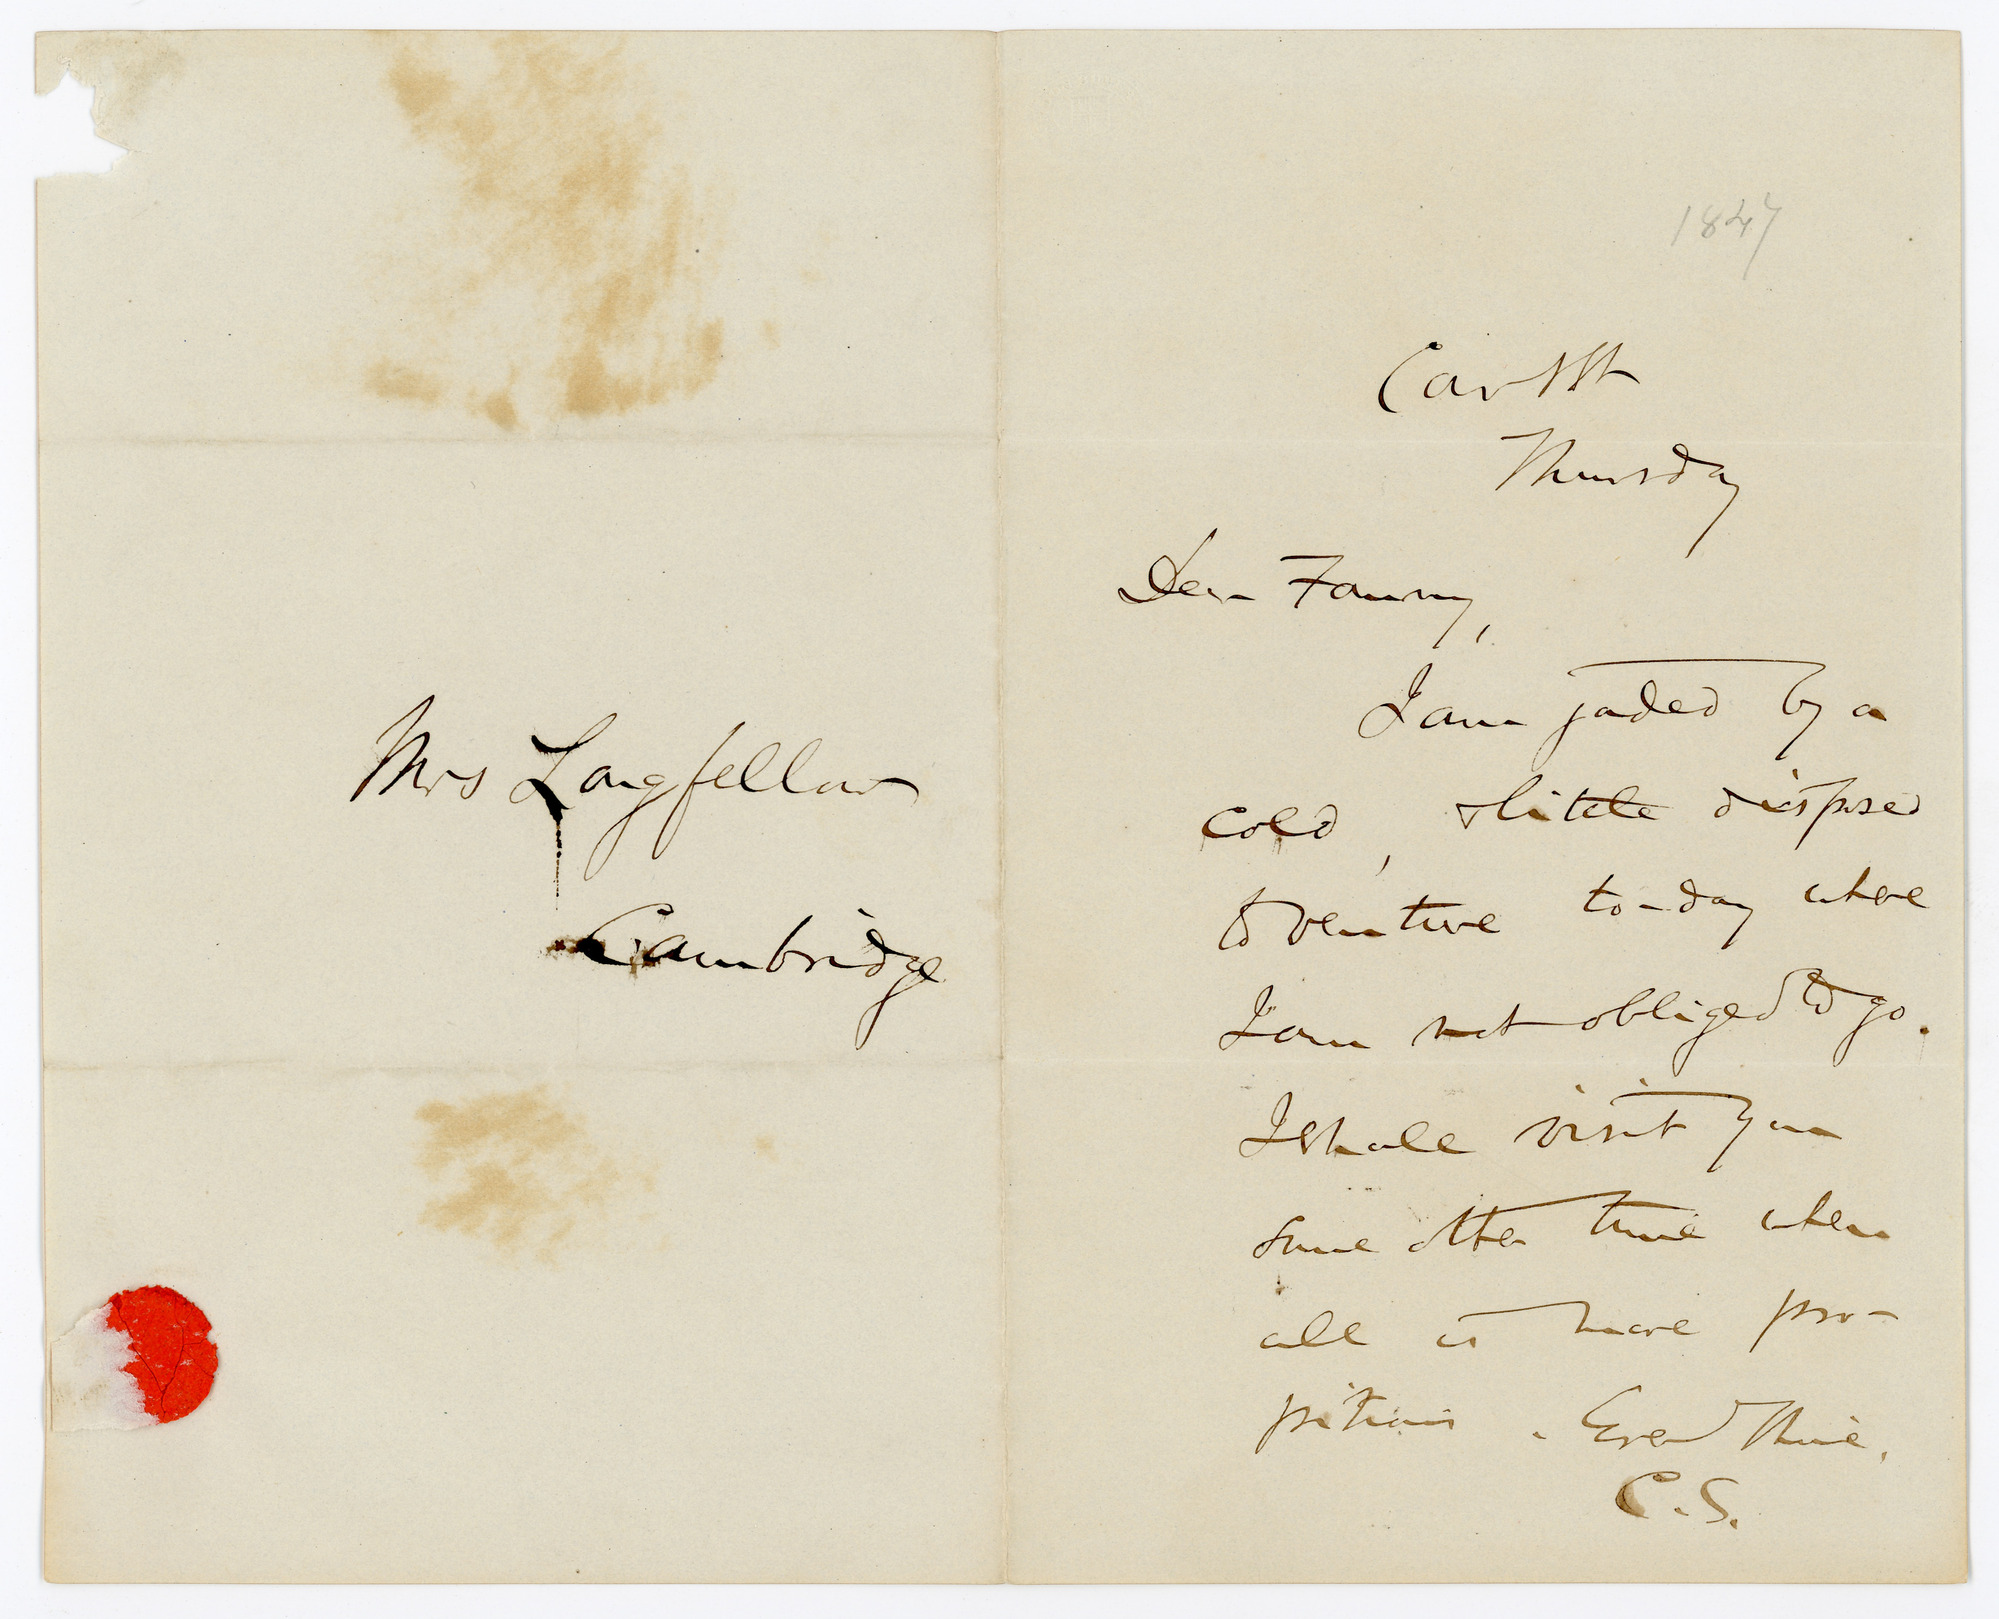 Mrs Longfellow
Cambridge
1847
Court St
Thursday
Dear Fanny,
I am jaded by a
cold, & little disposed
to venture to-day where
I am not obliged to go.
I shall visit you
some other time when
all is more pro-
pitious. Ever Thine,
C.S.